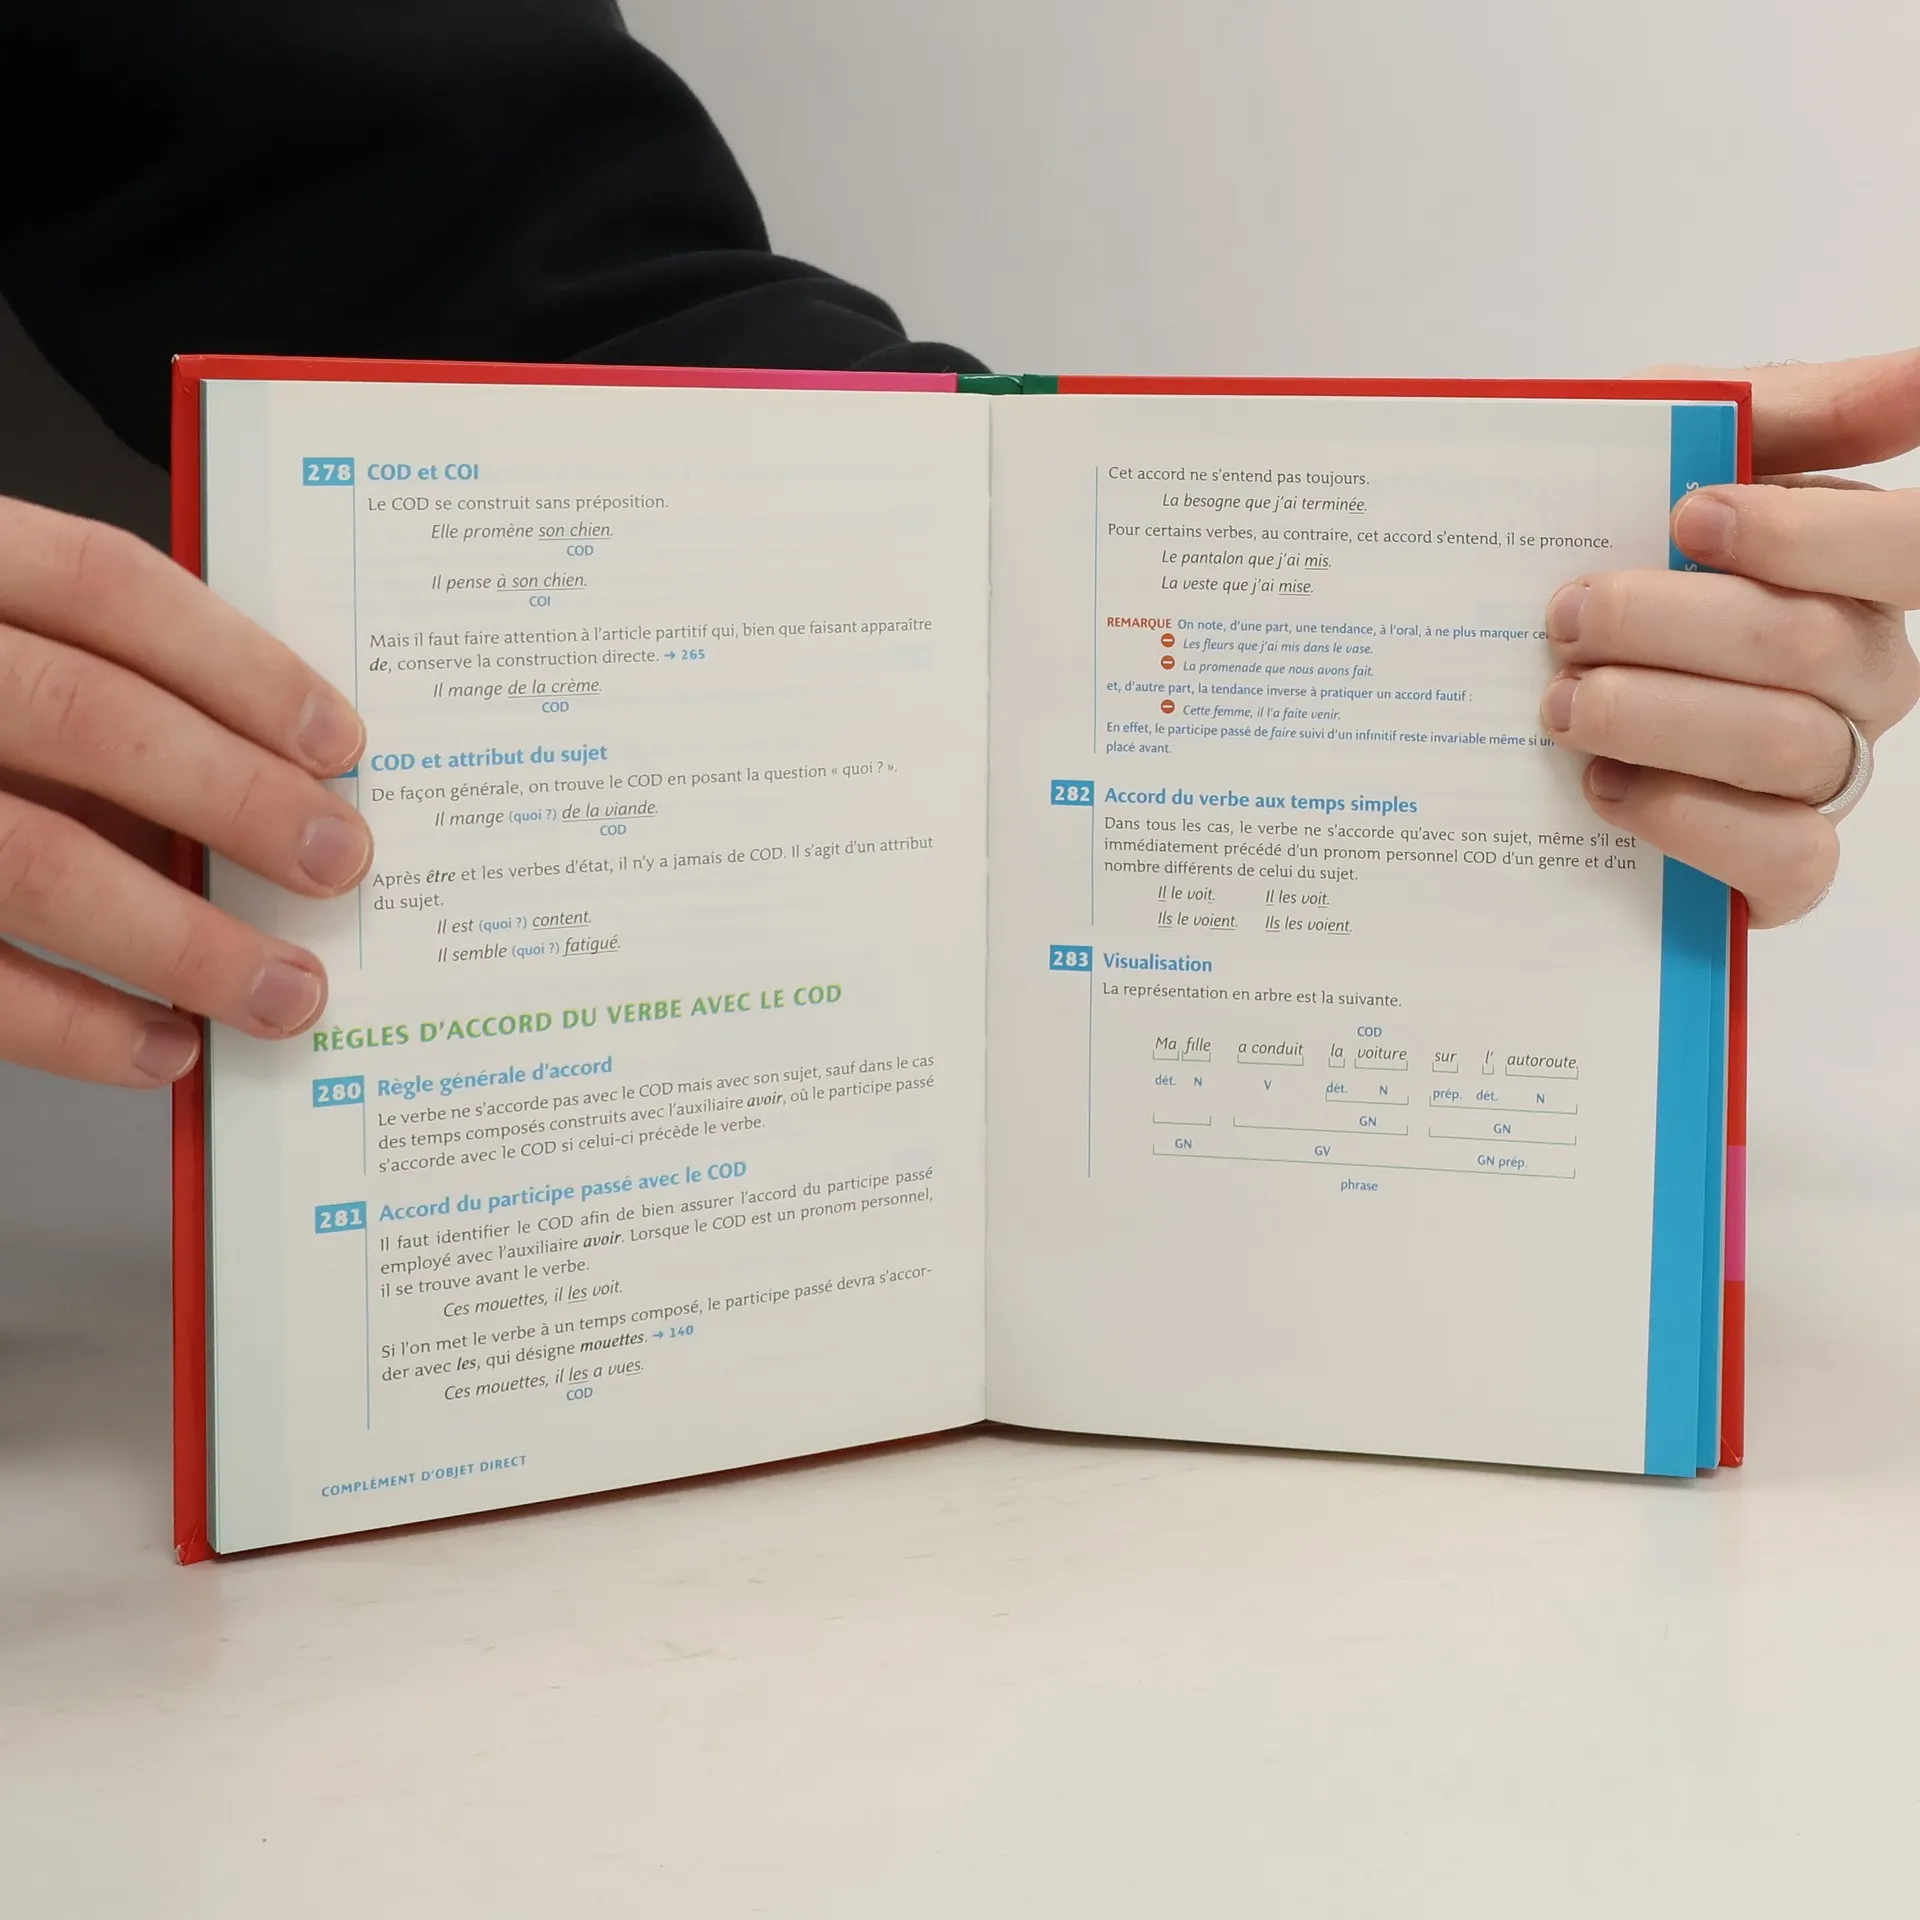 278 COD et COI
Le COD se construit sans préposition.
Elle promène son chien.
COD
Il pense à son chien.
COI
Mais il faut faire attention à l'article partitif qui, bien que faisant apparaître
de, conserve la construction directe. → 265
Il mange de la crème.
COD
COD et attribut du sujet
De façon générale, on trouve le COD en posant la question « quoi ? ».
Il mange (quoi ?) de la viande.
COD
Après être et les verbes d'état, il n'y a jamais de COD. Il s'agit d'un attribut
du sujet.
Il est (quoi ?) content.
Il semble (quoi ?) fatigué.
RÈGLES D'ACCORD DU VERBE AVEC LE COD
280 Règle générale d'accord
Le verbe ne s'accorde pas avec le COD mais avec son sujet, sauf dans le cas
des temps composés construits avec l'auxiliaire avoir, où le participe passé
s'accorde avec le COD si celui-ci précède le verbe.
281 Accord du participe passé avec le COD
Il faut identifier le COD afin de bien assurer l'accord du participe passé
employé avec l'auxiliaire avoir. Lorsque le COD est un pronom personnel,
il se trouve avant le verbe.
Ces mouettes, il les voit.
Si l'on met le verbe à un temps composé, le participe passé devra s'accor-
der avec les, qui désigne mouettes. → 140
Ces mouettes, il les a vues.
COD
COMPLÉMENT D'OBJET DIRECT
Cet accord ne s'entend pas toujours.
La besogne que j'ai terminée.
Pour certains verbes, au contraire, cet accord s'entend, il se prononce.
Le pantalon que j'ai mis.
La veste que j'ai mise.
REMARQUE On note, d'une part, une tendance, à l'oral, à ne plus marquer
Les fleurs que j'ai mis dans le vase.
La promenade que nous avons fait.
et, d'autre part, la tendance inverse à pratiquer un accord fautif :
Cette femme, il l'a faite venir.
En effet, le participe passé de faire suivi d'un infinitif reste invariable même si
placé avant.
282 Accord du verbe aux temps simples
Dans tous les cas, le verbe ne s'accorde qu'avec son sujet, même s'il est
immédiatement précédé d'un pronom personnel COD d'un genre et d'un
nombre différents de celui du sujet.
Il le voit. Il les voit.
Ils le voient. Ils les voient.
283 Visualisation
La représentation en arbre est la suivante.
COD
Ma fille a conduit la voiture sur l' autoroute.
dét. N V dét. N prép. dét. N
GN GN
GN GV GN prép.
phrase